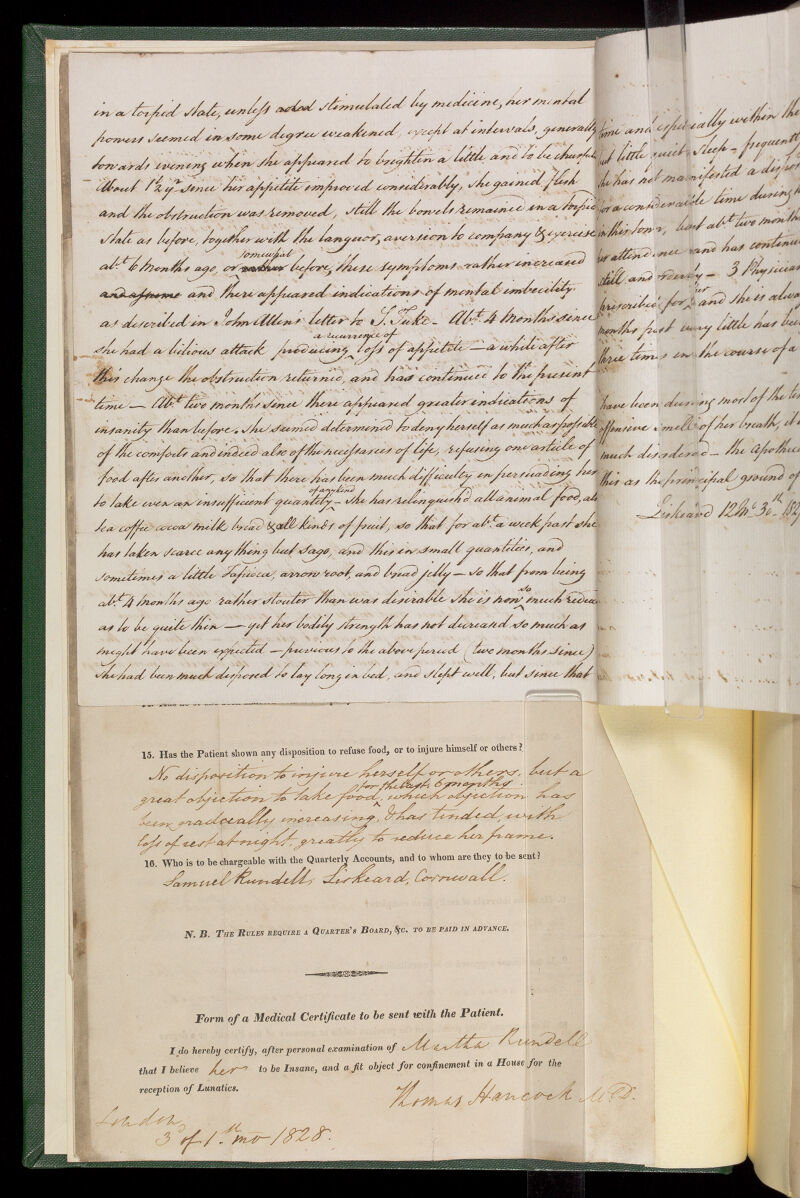 in a torpid state, unless aded stimulated by medicine, her mental
powers seemed in some degree weakened, except at intervals, generally
towards evening when she appeared to brighten a little and to be cheerful
About 1½ yr since her appetite improved considerably, she gained flesh
and the obstruction was removed, still the bowels remained in a torpid
state as before, together with the languor, aversion to company & exercise
somewhat
abt 6 Months ago, or rather before, these symptoms rather increased
and assume and there appeared indications of mental imbecility
as described in John Allens letter to S. Tuke - Abt 4 Months since
a recurrence of
she had a bilious attack producing loss of appetite — a while after
this change the obstruction returned, and has continued to the present
time — Abt two months since there appeared greater indications of
insanity than before. She seemed determined to deny herself as much as possible
of the comforts and indeed also of the necessaries of life, refusing one article of
food after another, so that there has been much difficulty in persuading her
of any kind
to take even an insufficient quantity — She has relinquish'd all animal food, als
tea coffee cocoa milk bread & all kinds of fruit, so that for abt a week past she
has taken scarce any thing but sago, and this in small quantities, and
sometimes a little Tapioca, arrow root, and bread jelly — so that from being
so
abt 4 months ago rather stouter than was desirable she is now much reduce
as to be quite thin — yet her bodily strength has not decreased so much as
might have been expected — previous to the above period (two months since)
she had been much disposed to lay long in bed, and slept well, but since that
time and especially within the
but little quiet sleep - frequently
she has not manifested a dispos
for a considerable time during h
in this town, but abt two month
attendance and has continue
still and - 3 Physician
her
prescribed for and she is alwa
months past very little has bee
three times in the course of a
have been during most of the tim
offensive smell of her breath, it i
much disordered - the Apothec
this as the principal ground of
Liskeard 12 Mo 30th 182
15. Has the Patient shown any disposition to refuse food, or to injure himself or others?
No disposition to injure herself or others, but a
for the last 6 months
great objection to take food, which objection has
been gradually increasing, & has tended, with
loss of rest at night, greatly to reduce her frame.
16. Who is to be chargeable with the Quarterly Accounts, and to whom are they to be sent?
Samuel Rundell, Liskeard, Cornwall.
N. B. The Rules require a Quarter's Board, &c. to be paid in advance.
Form of a Medical Certificate to be sent with the Patient.
I do hereby certify, after personal examination of Martha Rundell
that I believe her to be Insane, and a fit object for confinement in a House for the
reception of Lunatics.
Thomas Hancock M.D.
London
3 of 1st mo 1828.